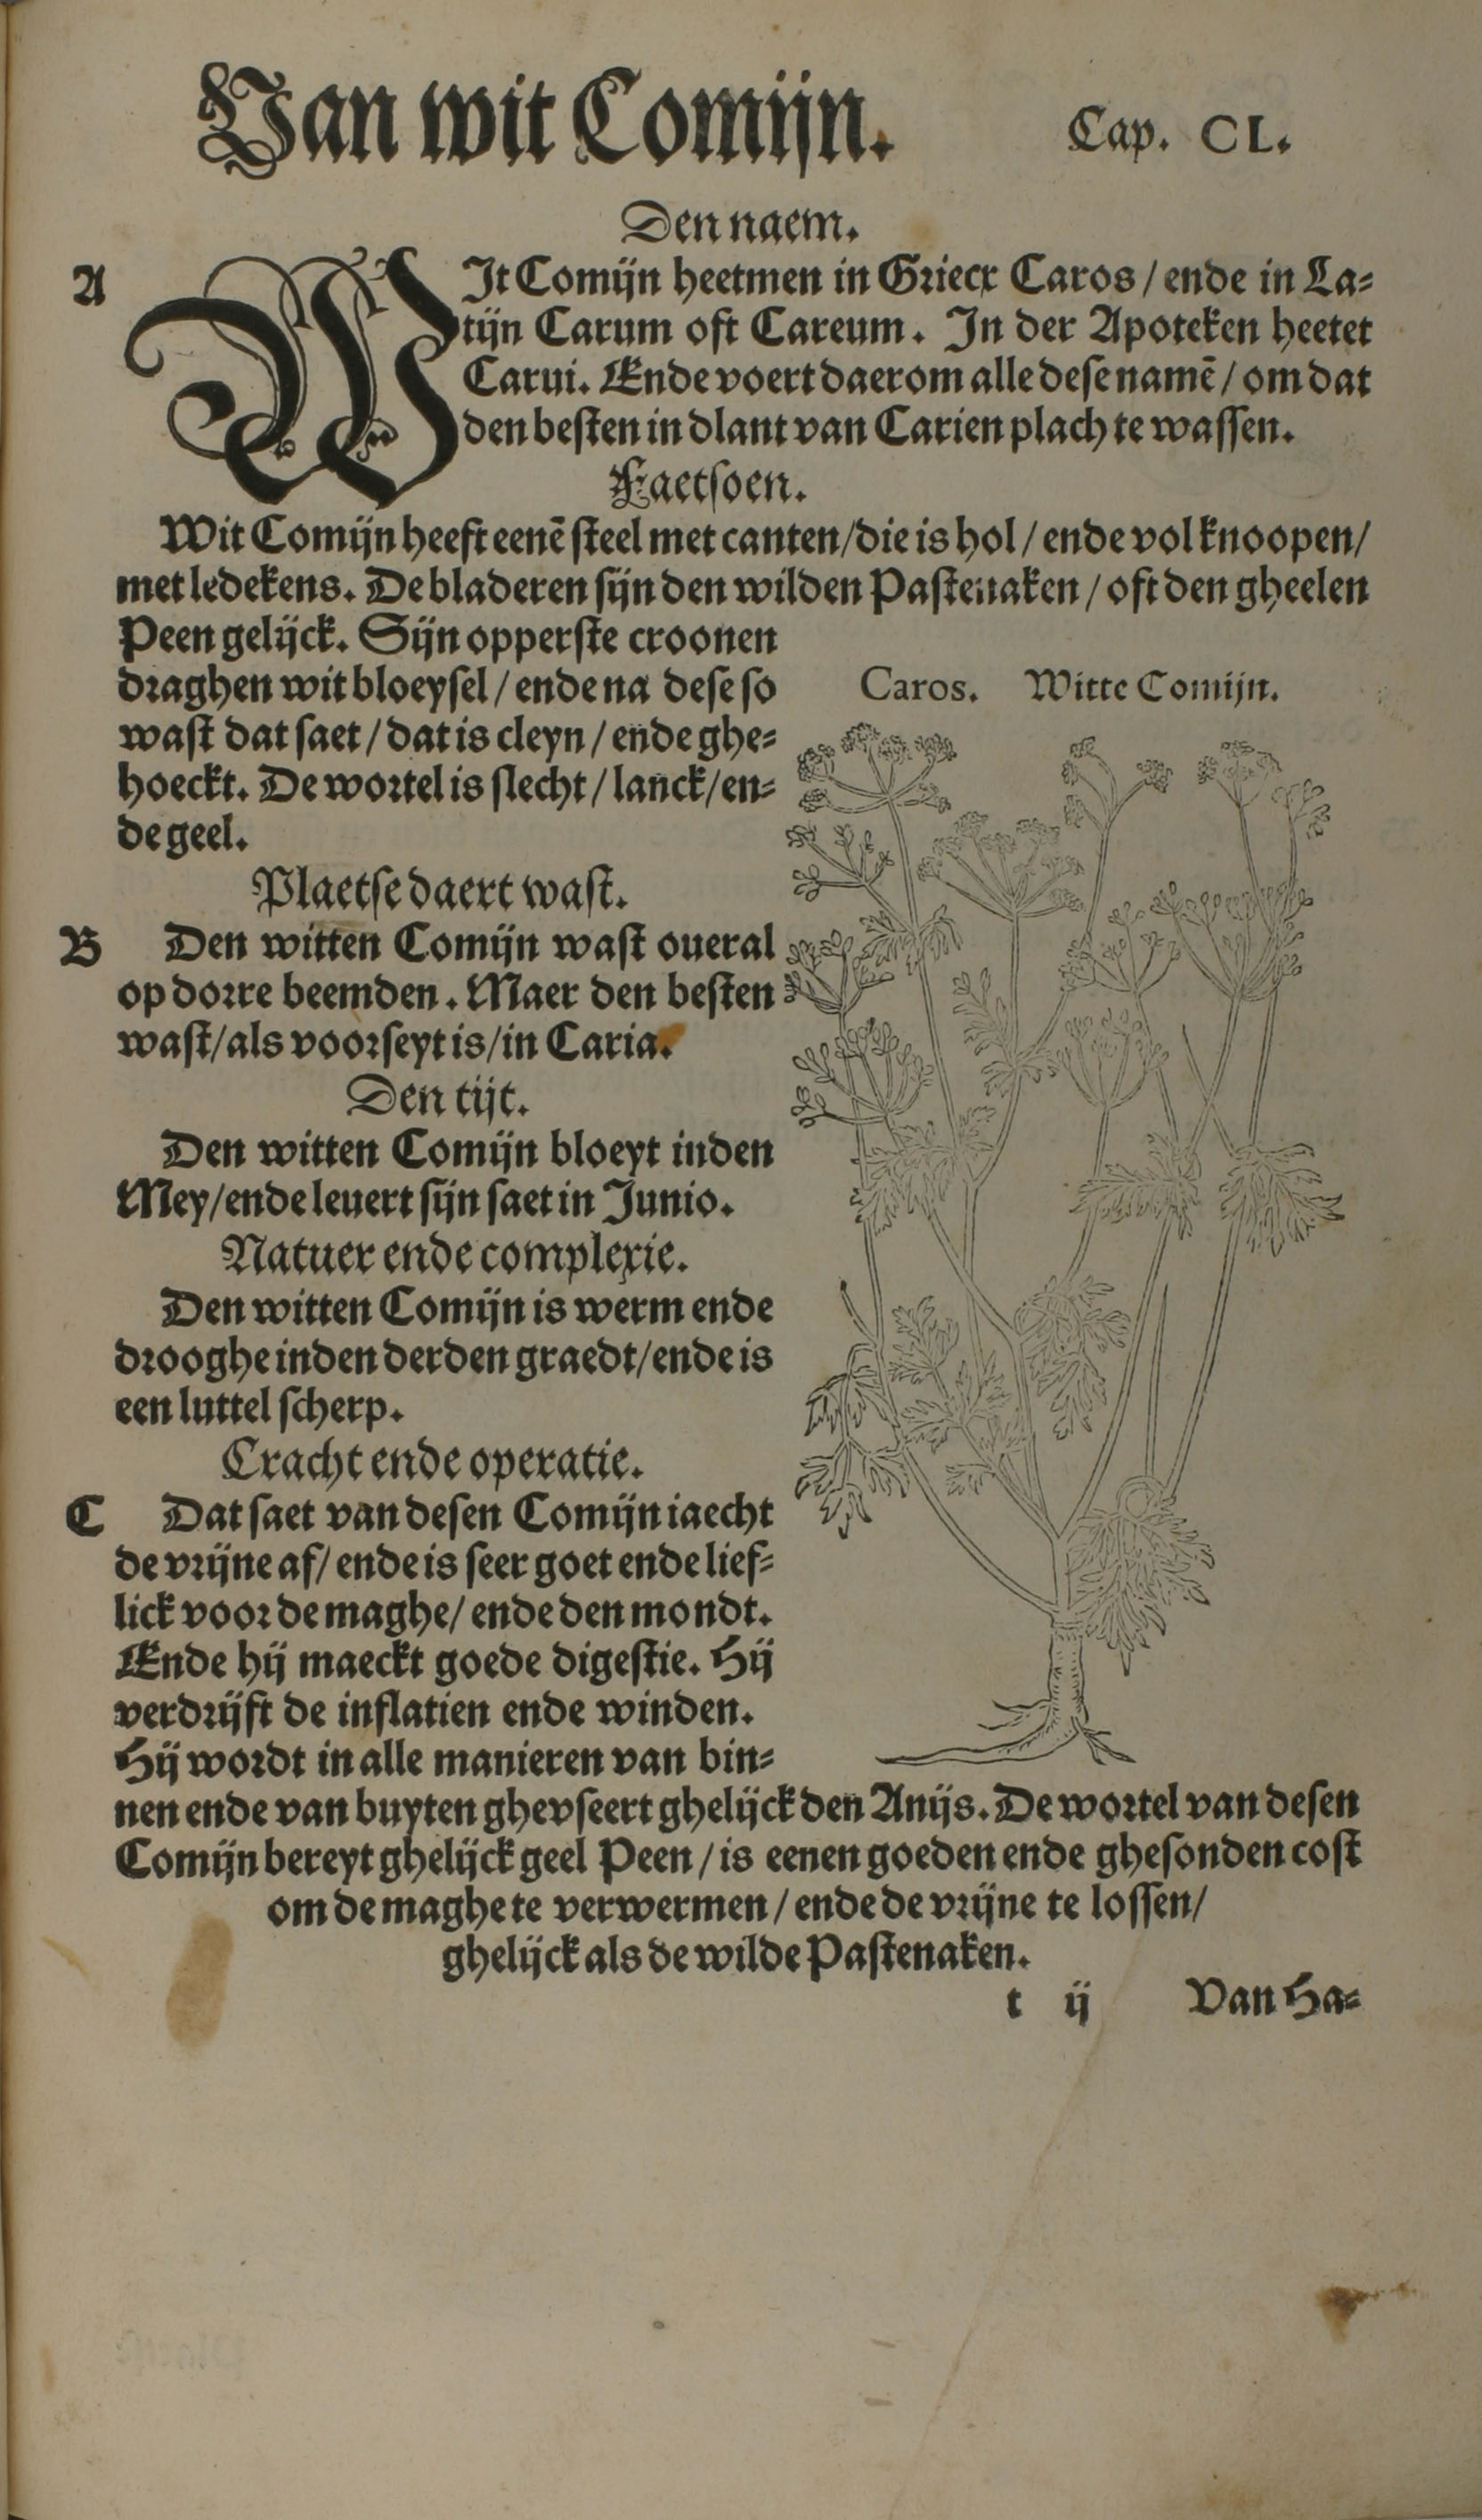 Van wit Comijn. Cap. CL.
Den naem.
A
WIt Comijn heetmen in Griecx Caros / ende in La-
tijn Carum oft Careum. In der Apoteken heetet
Carui. Ende voert daerom alle dese namē / om dat
den besten in dlant van Carien plach te wassen.
Faetsoen.
Wit Comijn heeft eenē steel met canten / die is hol / ende vol knoopen /
met ledekens. De bladeren sijn den wilden Pastenaken / oft den gheelen
Peen gelijck. Sijn opperste croonen
draghen wit bloeysel / ende na dese so
wast dat saet / dat is cleyn / ende ghe-
hoeckt. De wortel is slecht / lanck / en-
de geel.
Caros. Witte Comijn.
Plaetse daert wast.
B Den witten Comijn wast oueral
op dorre beemden. Maer den besten
wast / als voorseyt is / in Caria.
Den tijt.
Den witten Comijn bloeyt inden
Mey / ende leuert sijn saet in Junio.
Natuer ende complexie.
Den witten Comijn is werm ende
drooghe inden derden graedt / ende is
een luttel scherp.
Cracht ende operatie.
C Dat saet van desen Comijn iaecht
de vrijne af / ende is seer goet ende lief-
lick voor de maghe / ende den mondt.
Ende hij maeckt goede digestie. Hij
verdrijft de inflatien ende winden.
Hij wordt in alle manieren van bin-
nen ende van buyten ghevseert ghelijck den Anijs. De wortel van desen
Comijn bereyt ghelijck geel Peen / is eenen goeden ende ghesonden cost
om de maghe te verwermen / ende de vrijne te lossen /
ghelijck als de wilde Pastenaken.
t ij Van Ha-